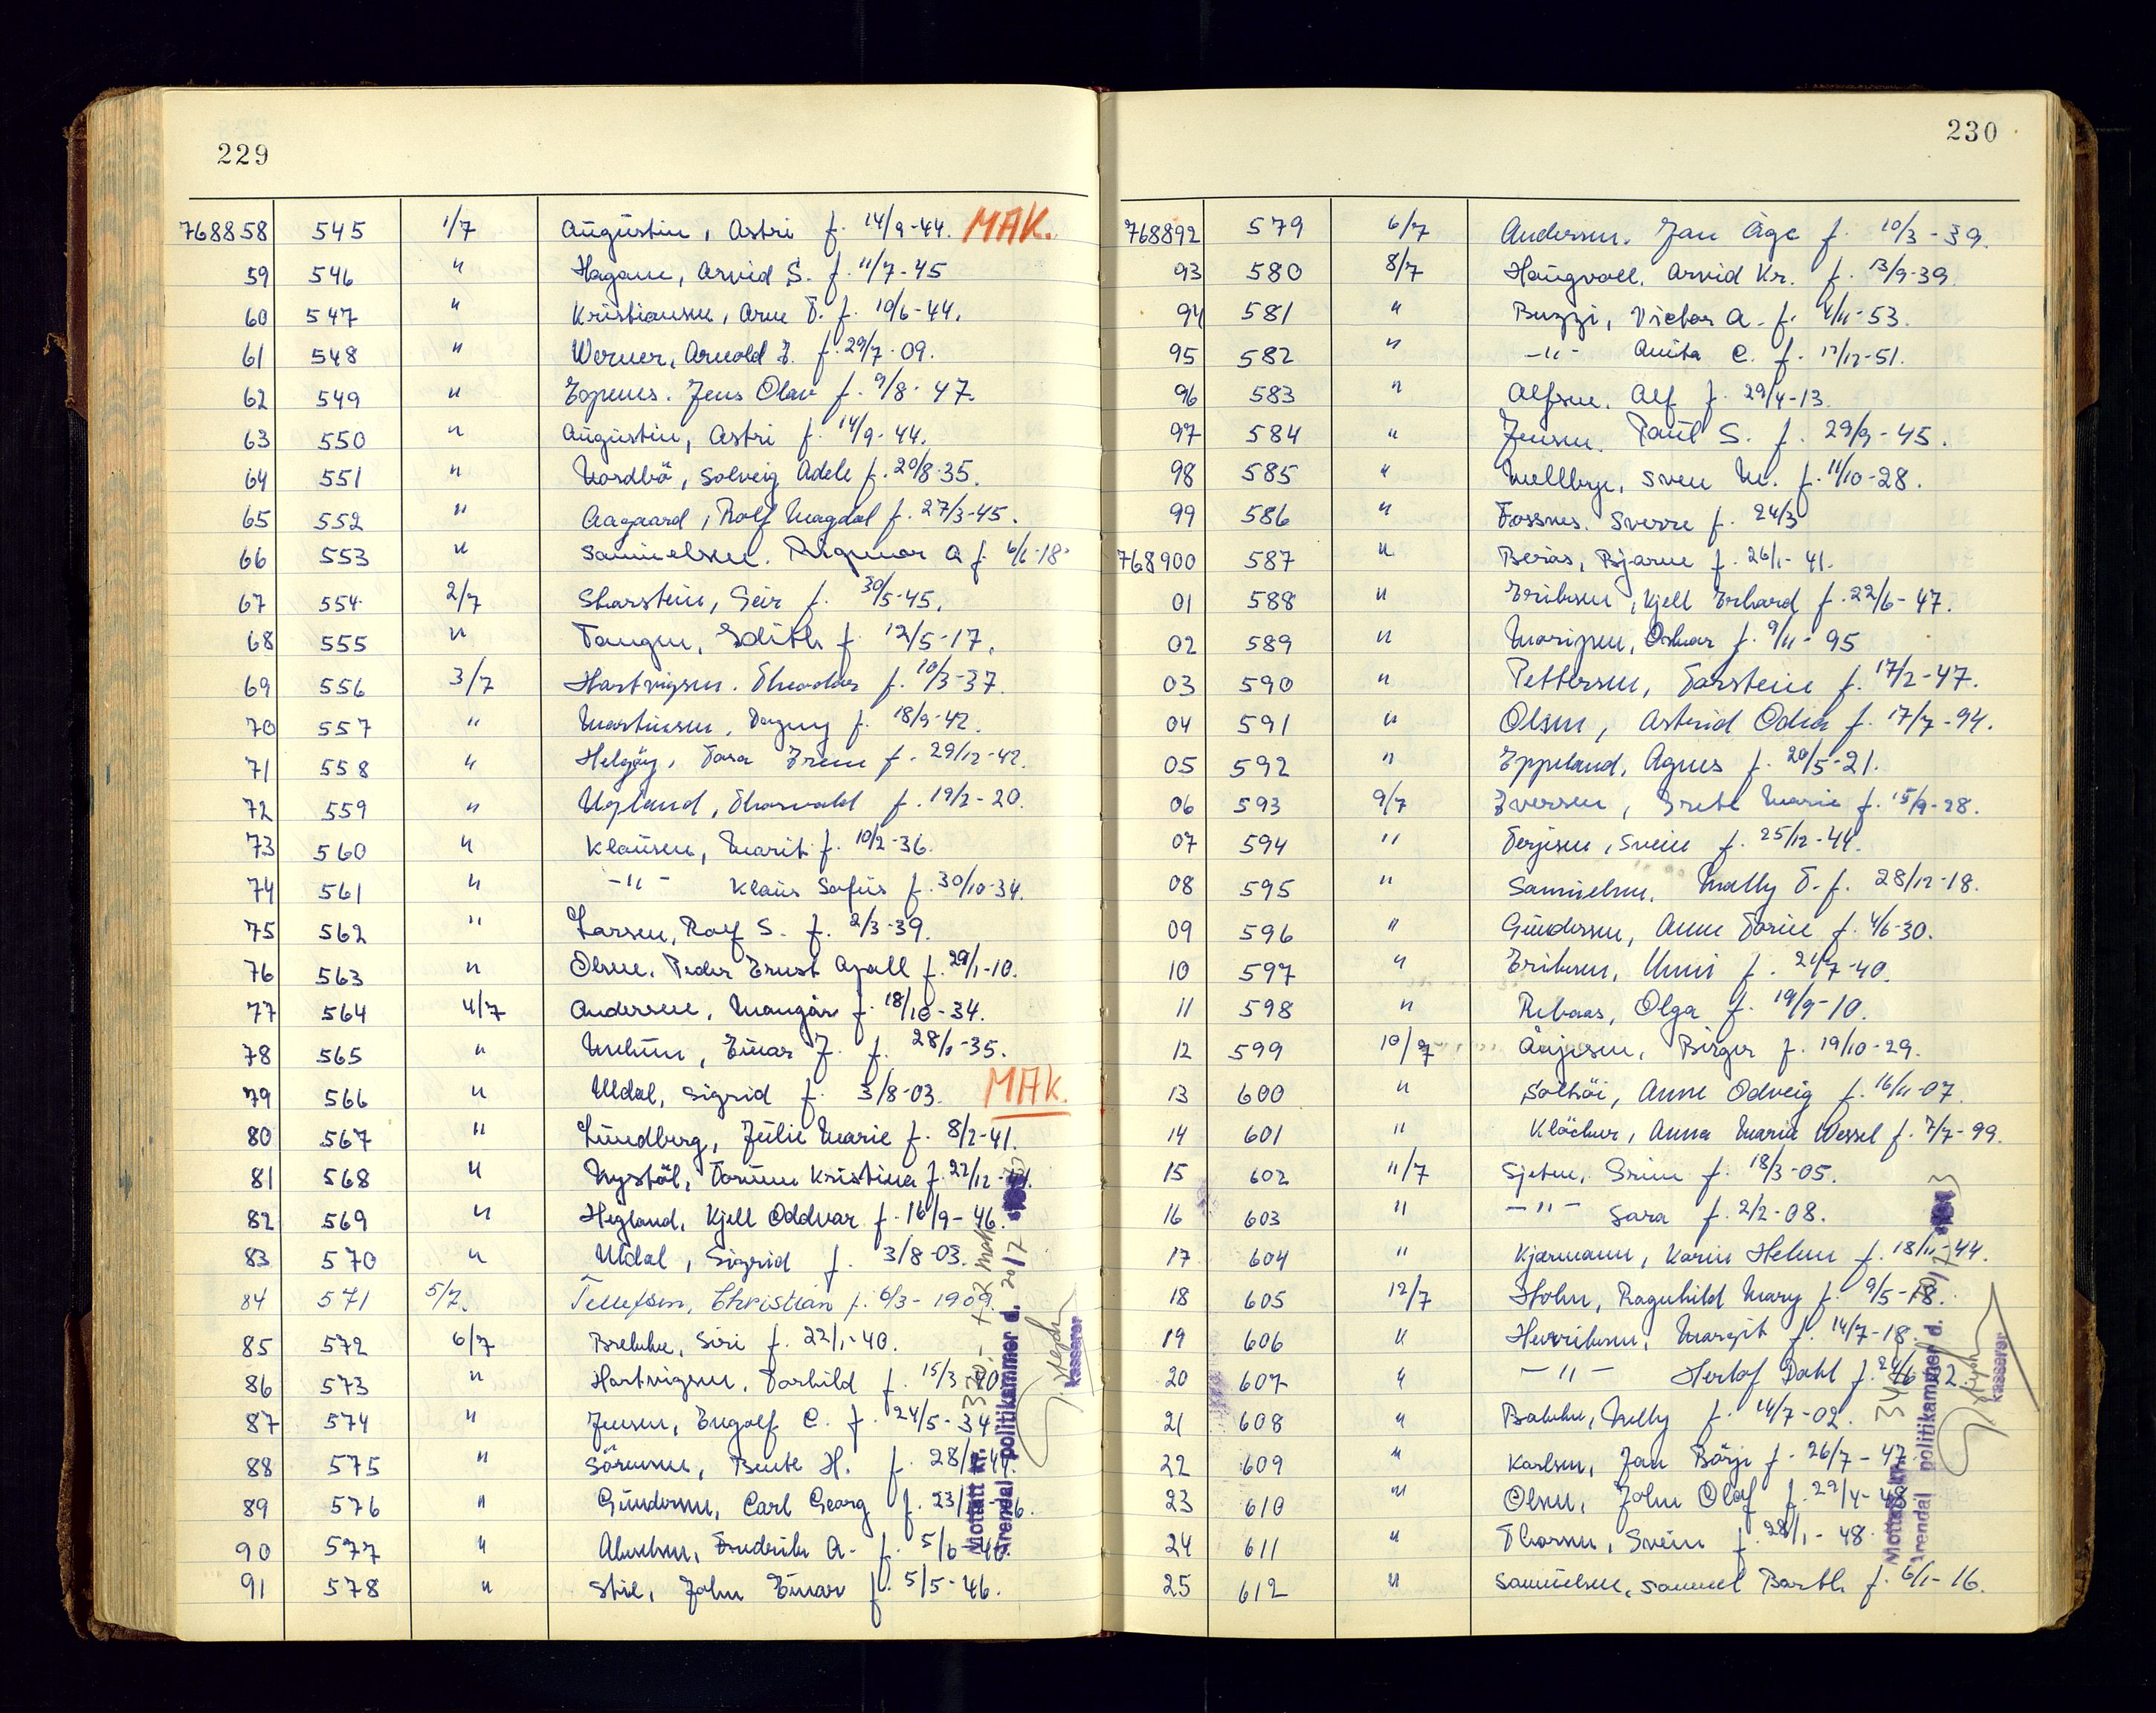 229
768858 545 1/7 Augustin, Astri f. 14/9-44. MAK.
59 546 " Hagane, Arvid S. f. 11/7-45
60 547 " Kristiansen, Arne T. f. 10/6-44.
61 548 " Werner, Arnold I. f. 29/7-09.
62 549 " Espenes. Jens Olav f. 9/8-47.
63 550 " Augustin, Astri f. 14/9-44.
64 551 " Nordbö, Solveig Adele f. 20/8-35.
65 552 " Aagaard, Rolf Magdal f. 27/3-45.
66 553 " Samuelsen. Ragnar A f. 6/6-18.
67 554 2/7 Skarstein, Geir f. 30/5-45.
68 555 " Tangen, Edith f 12/5-17.
69 556 3/7 Hartvigsen. Theodor f. 10/3-37.
70 557 " Martinsen, Dagny f. 18/9-42.
71 558 " Helgöy, Tora Irene f. 29/12-42.
72 559 " Ugland, Thorvald f. 19/2-20.
73 560 " Klausen, Marit f. 10/2-36.
74 561 " -"- Klaus Sofus f. 30/10-34.
75 562 " Larsen, Rolf S. f. 2/3-39.
76 563 " Olsen. Peder Ernst f. 29/1-10.
77 564 4/7 Andersen, Mangår f. 18/10-34.
78 565 " Einar J. f. 28/1-35.
79 566 " Uldal, Sigrid f. 3/8-03. MAK.
80 567 " Lundberg, Julie Marie f. 8/2-41.
81 568 " Nystöl, Torunn Kristina f. 22/12-
82 569 " Hegland, Kjell Oddvar f. 16/9-46.
83 570 " Uldal, Sigrid f. 3/8-03.
84 571 5/7. Tellefsen, Christian f. 6/3-1909.
85 572 6/7 Brekke, Siri f. 22/1-40.
86 573 " Hartvigsen, Torhild f. 15/3-
87 574 " Jensen, Ingolf C. f. 24/5-34
88 575 " Sörensen, Bente H. f. 28/
89 576 " Gundersen, Carl Georg f. 23/
90 577 " Fredrik A. f. 5/6-46.
91 578 " Stie, John Einar f. 5/5-46.
Mottatt kr. 350.- + 2 mak
Arendal politikammer d. 20/7
kasserer
230
768892 579 6/7 Andersen. Jan Åge f. 10/3-39.
93 580 8/7 Haugvoll. Arvid Kr. f. 13/9-39.
94 581 " Buzzi, Victor A. f. 4/11-53.
95 582 " -"- Anita C. f. 12/12-51.
96 583 " Alfsen. Alf f. 29/4-13.
97 584 " Jensen. Paul S. f. 29/9-45.
98 585 " Mellbye, Sven M. f. 11/10-28.
99 586 " Fossnes. Sverre f. 24/3
768900 587 " Berås, Bjarne f. 26/1-41.
01 588 " Eriksen, Kjell Erhard f. 22/6-47.
02 589 " Oskar f. 9/11-95
03 590 " Pettersen, Torstein f. 17/2-47.
04 591 " Olsen, Astrid Odea f. 17/7-94.
05 592 " Eppeland, Agnes f. 20/5-21.
06 593 9/7 Iversen, Grete Marie f. 15/9-28.
07 594 " Terjesen, Svein f. 25/12-44.
08 595 " Samuelsen. Mally T. f. 28/12-18.
09 596 " Gundersen, Anne Torine f. 4/6-30.
10 597 " Eriksen, Unni f. 24/7-40.
11 598 " Rebaas, Olga f. 19/9-10.
12 599 10/7 Åmjesen, Birger f. 19/10-29.
13 600 " Solhöi, Anne Odveig f. 16/11-07.
14 601 " Klöcker, Anna Maria Wessel f. 7/7-99.
15 602 11/7 Sjeten, Grim f. 18/3-05.
16 603 " -"- Sara f. 2/2-08.
17 604 " Kjærmann, Karin Helen f. 18/11-44.
18 605 12/7 Holm, Ragnhild Mary f. 9/5-18.
19 606 " Henriksen, Margit f. 14/7-18.
20 607 " -"- Herlof Dahl f. 24/6-12.
21 608 " Bakke, Nelly f. 14/7-02.
22 609 " Karlsen, Jan Börje f. 26/7-47.
23 610 " Olsen, John Olaf f. 29/4-
24 611 " Thorsen, Svein f. 28/1-48
25 612 " Samuelsen, Samuel Barth f. 6/1-16.
Mottatt kr. 340
Arendal politikammer d.
kasserer